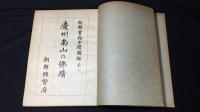 朝鮮寶物古蹟圖錄第二
慶州南山の佛蹟
朝鮮總督府